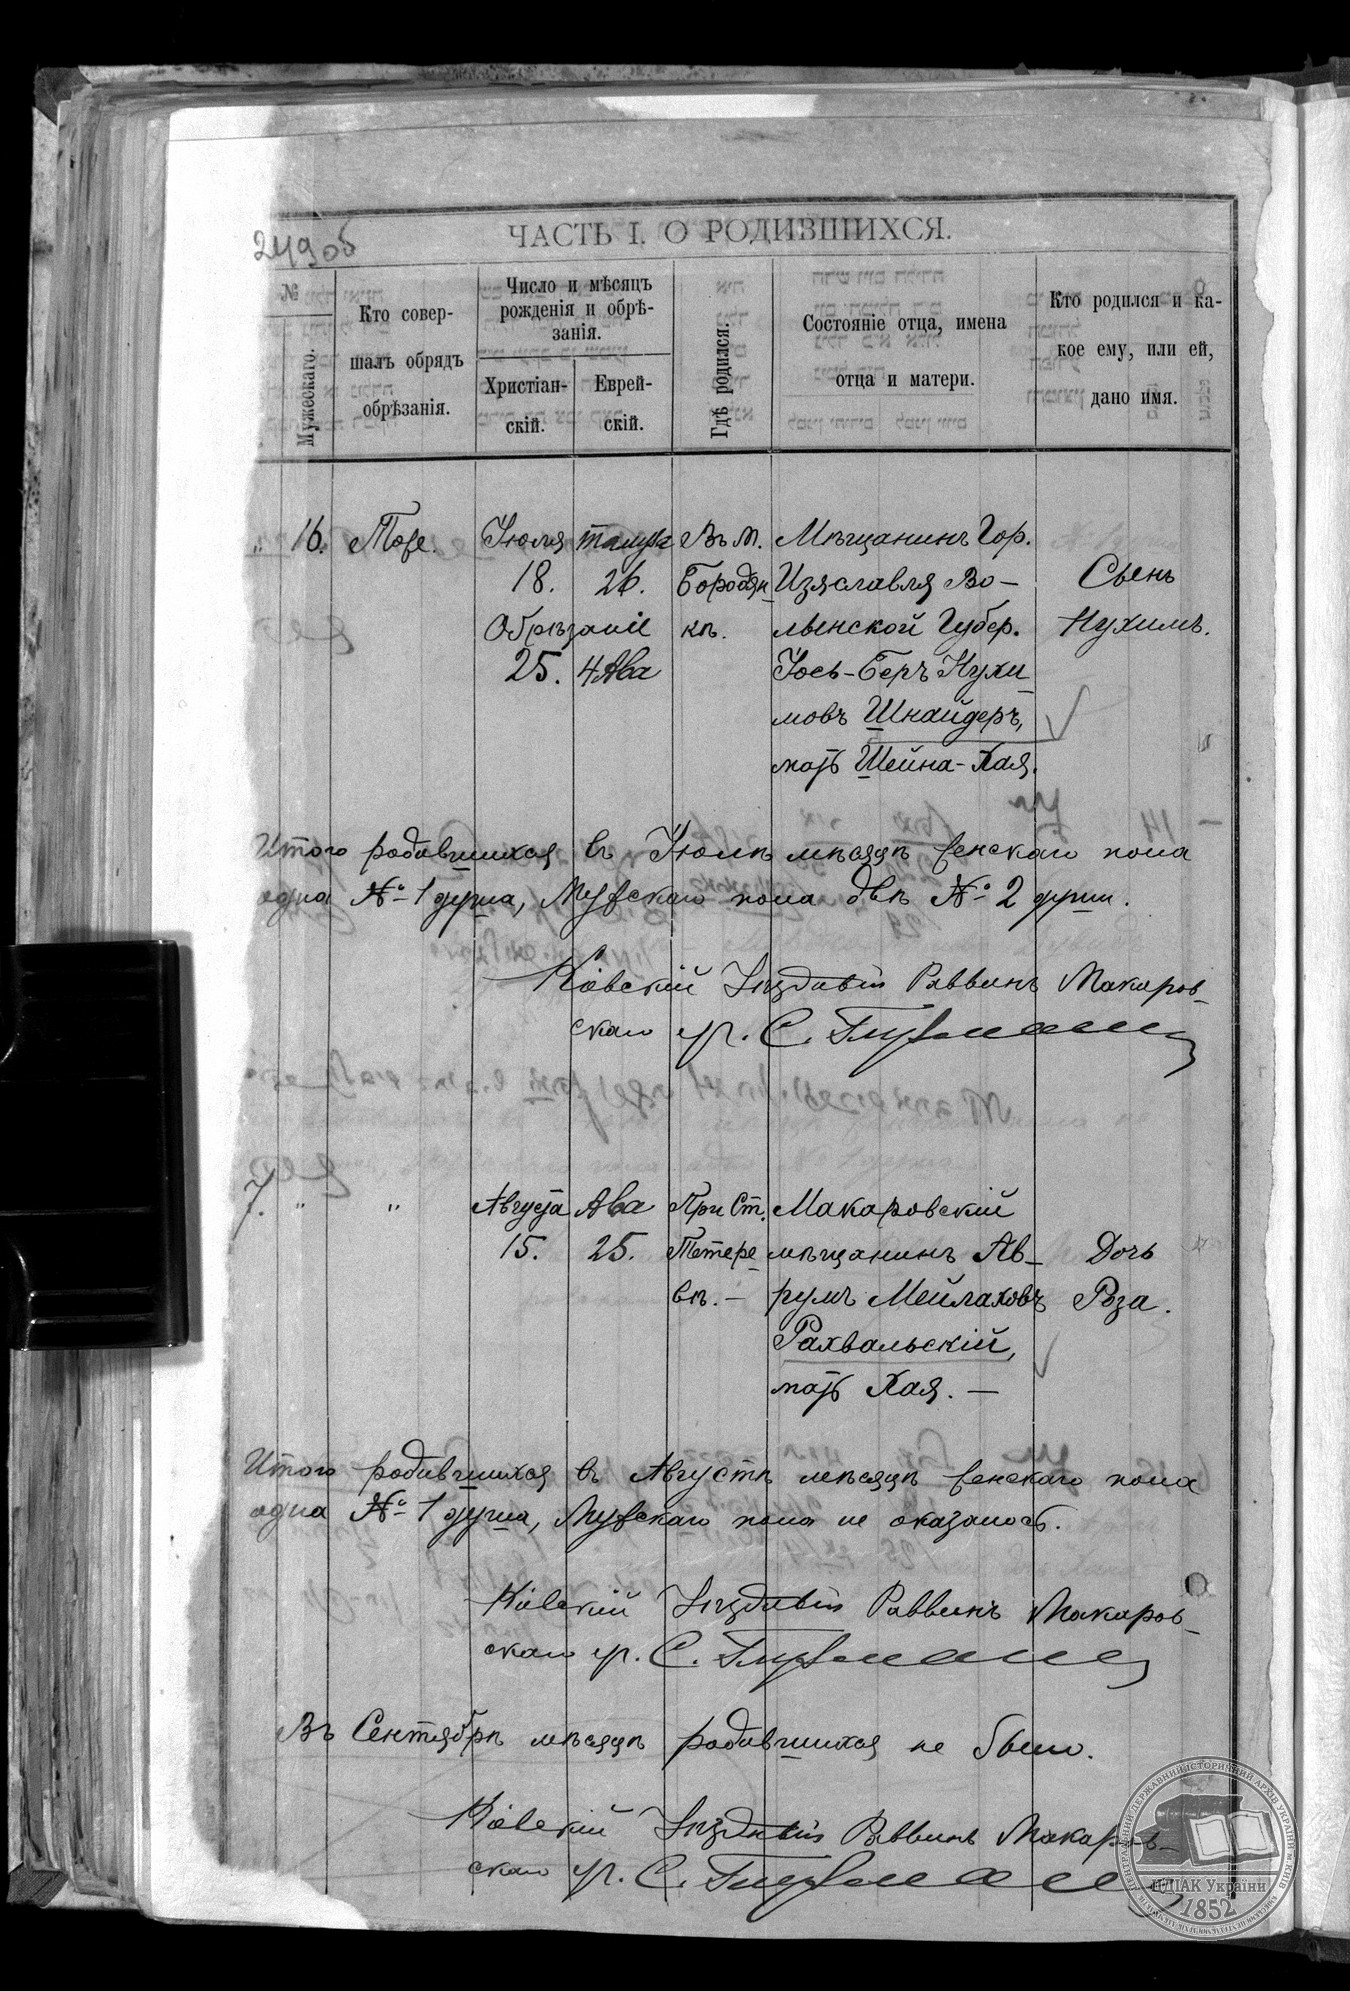 249об
ЧАСТЬ I. О РОДИВШИХСЯ.
№
Мужескаго.
Кто совер-
шалъ обрядъ
обрѣзанія.
Число и мѣсяцъ
рожденія и обрѣ-
занія.
Христіан-
скій.
Еврей-
скій.
Гдѣ родился.
Состояніе отца, имена
отца и матери.
Кто родился и ка-
кое ему, или ей,
дано имя.
„ 16. Тоже. Іюля тамуза Въ М. Мѣщанинъ Гор.
18. 26. Бородян- Изяславля Во- Сынъ
Обрѣзаніе кѣ. лынской Губер. Нухимъ.
25. 4 Ава Іось-Беръ Нухи-
мовъ Шнайдеръ,
мать Шейна-Хая.
Итого родившихся въ Іюлѣ мѣсяцѣ женскаго пола
одна № 1 душа, Мужскаго пола двѣ № 2 души.
Кіевскій Уѣздный Раввинъ Макаров-
скаго уч. С.
7. „ „ Августа Ава При Ст. Макаровскій
15. 25. Тетере- мѣщанинъ Ав- Дочь
вѣ. — румъ Мейлаховъ Роза.
Рахвальскій,
мать Хая. —
Итого родившихся въ Августѣ мѣсяцѣ женскаго пола
одна № 1 душа, Мужскаго пола не оказалось.
Кіевскій Уѣздный Раввинъ Макаров-
скаго уч. С.
Въ Сентябрѣ мѣсяцѣ родившихся не было.
Кіевскій Уѣздный Раввинъ Макаров-
скаго уч. С.
ЦЕНТРАЛЬНИЙ ДЕРЖАВНИЙ ІСТОРИЧНИЙ АРХІВ УКРАЇНИ, М. КИЇВ
ЦДІАК України
1852